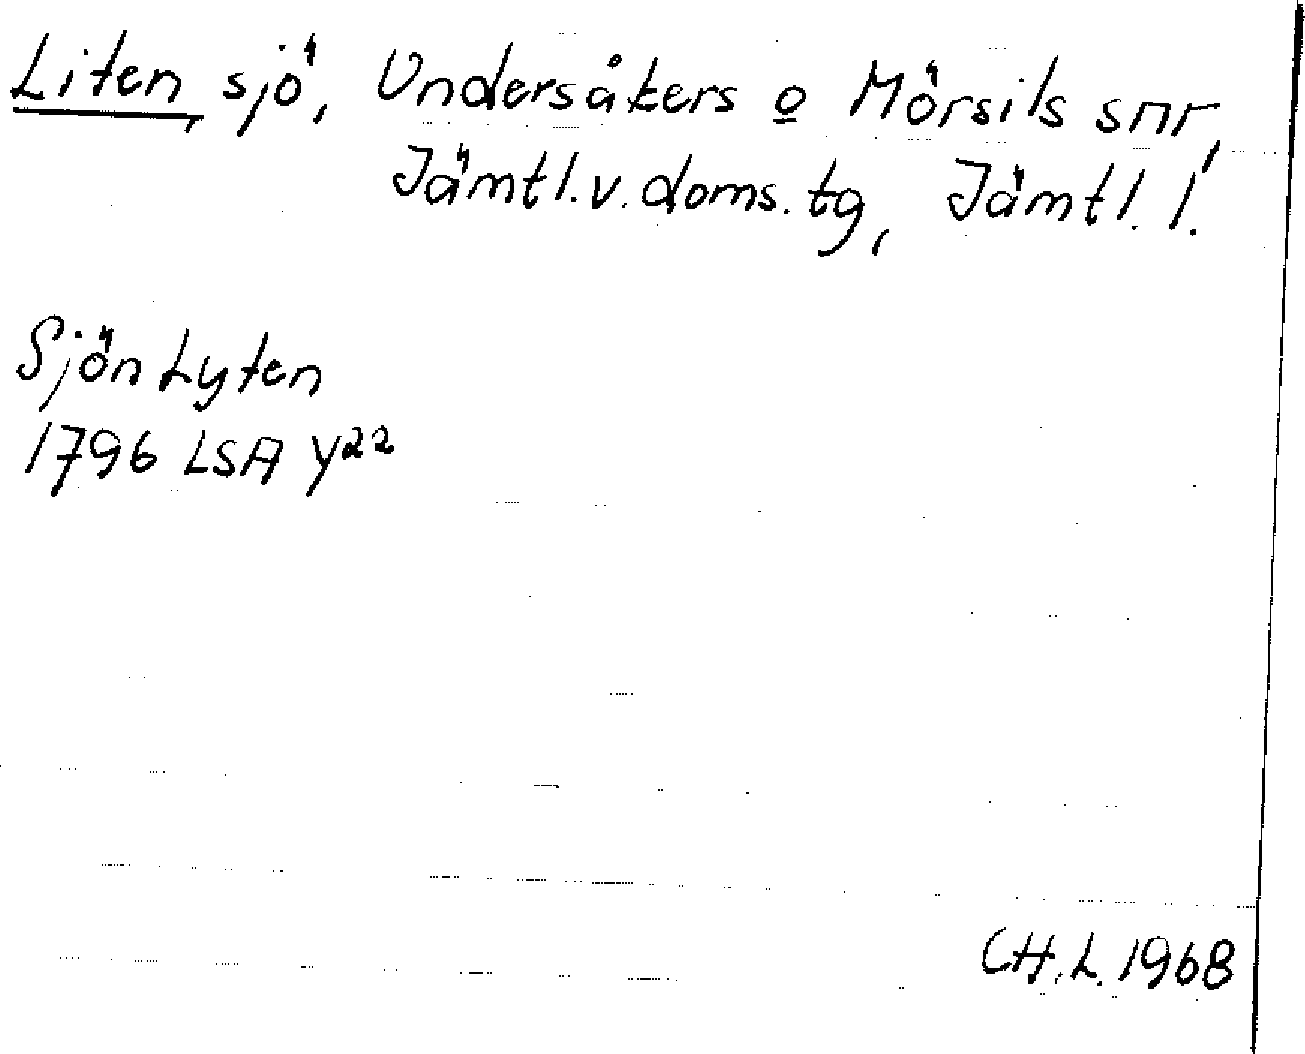 Liten, sjö, Undersåkers o Mörsils snr,
Jämtl. v. doms. tg, Jämtl. l.
Sjön Lyten
1796 LSA Y22
CH.L. 1968